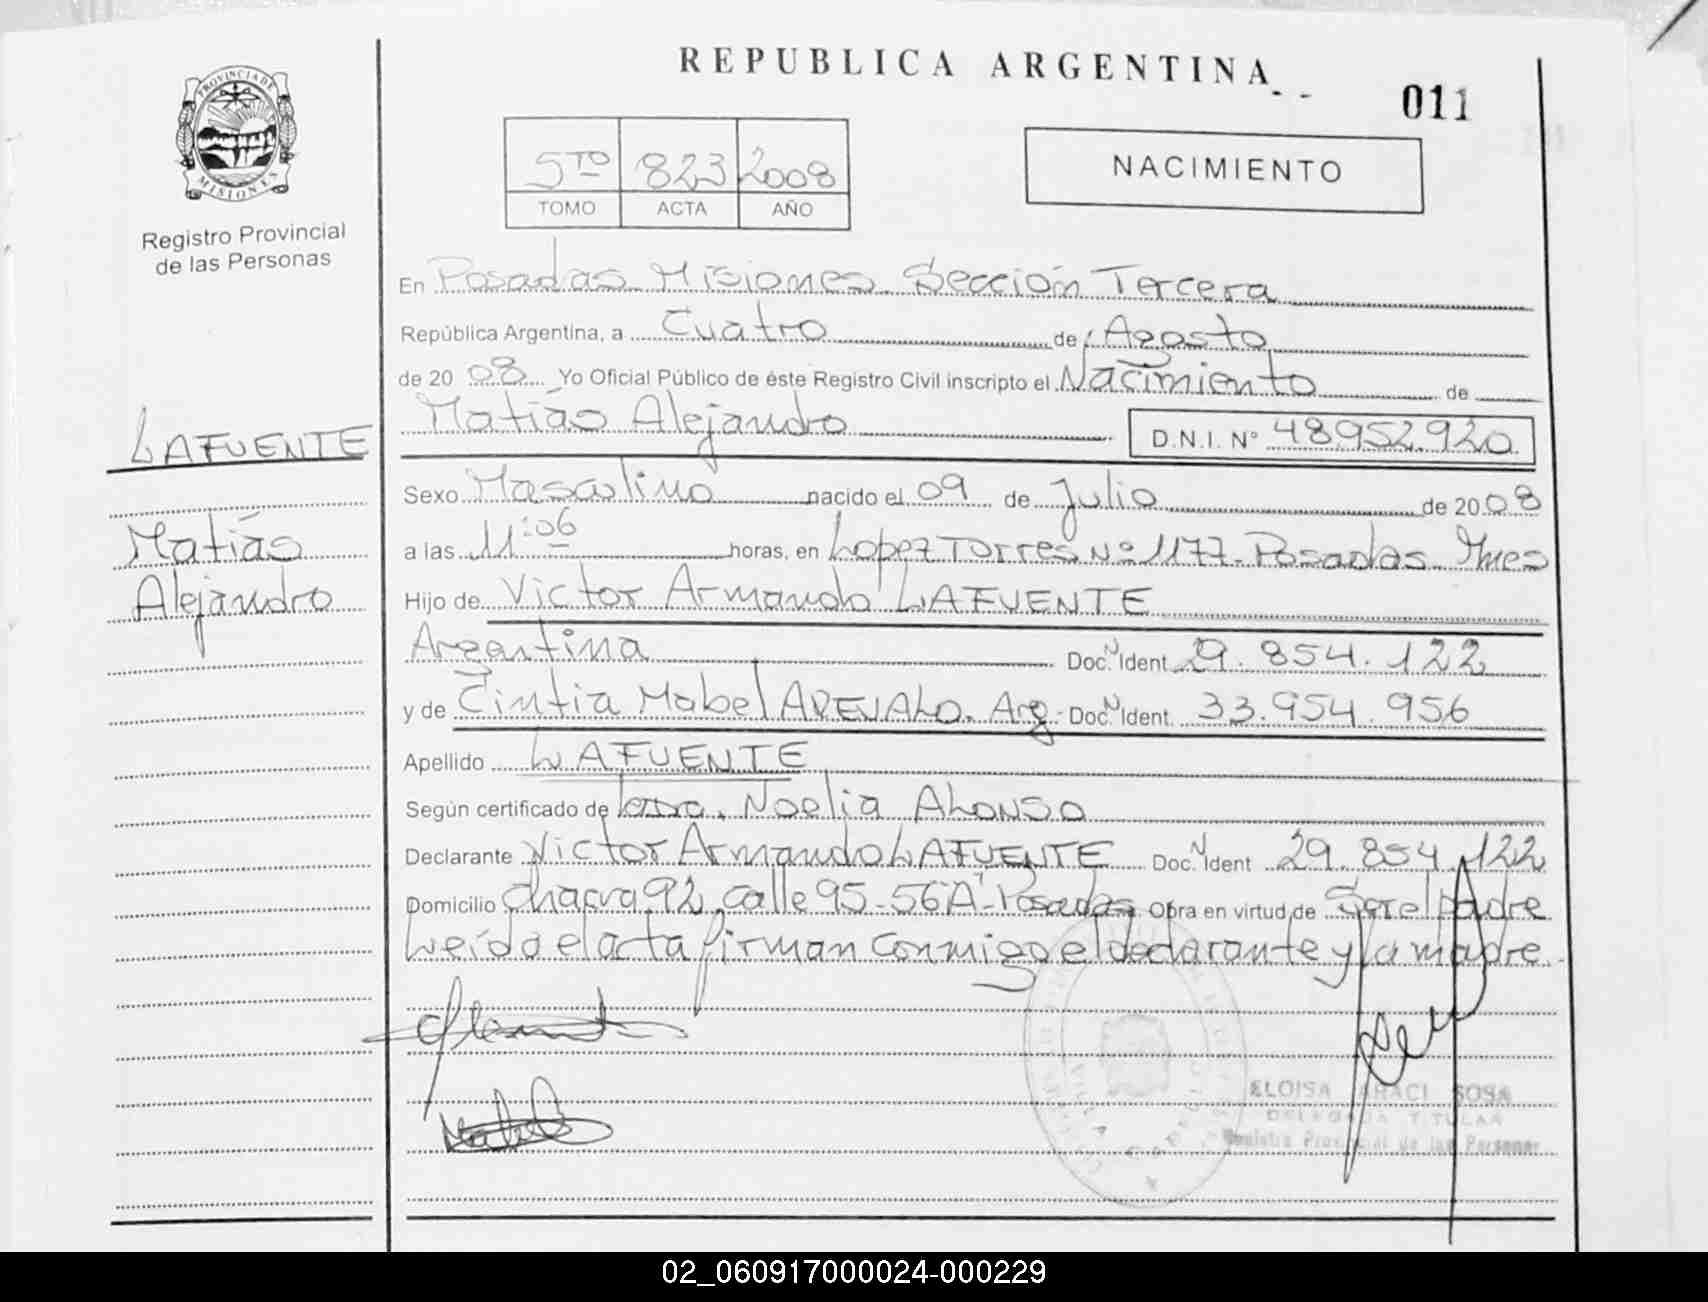 REPUBLICA ARGENTINA
011
PROVINCIA DE
MISIONES
Registro Provincial
de las Personas
5TO 823 2008
TOMO ACTA AÑO
NACIMIENTO
En Posadas Misiones Sección Tercera
República Argentina, a Cuatro de Agosto
de 20 08 Yo Oficial Público de éste Registro Civil inscripto el Nacimiento de
Matías Alejandro D.N.I. N° 48952.920
LAFUENTE
Matías
Alejandro
Sexo Masculino nacido el 09 de Julio de 20 08
a las 11:06 horas, en Lopez Torres Nº 1177- Posadas Mnes
Hijo de Victor Armando LAFUENTE
Argentina Doc. Ident 29.854.122
y de Cintia Mabel AREVALO. Arg. Doc. Ident. 33.954.956
Apellido LAFUENTE
Según certificado de Noelia ALONSO
Declarante Victor Armando LAFUENTE Doc. Ident 29.854.122
Domicilio Chacra 92 calle 95-56"A"- Posadas Obra en virtud de Ser el padre
Leída el acta firman conmigo el declarante y la madre.
ELOISA ARACI SOSA
DELEGADA TITULAR
Registro Provincial de las Personas
02_060917000024-000229